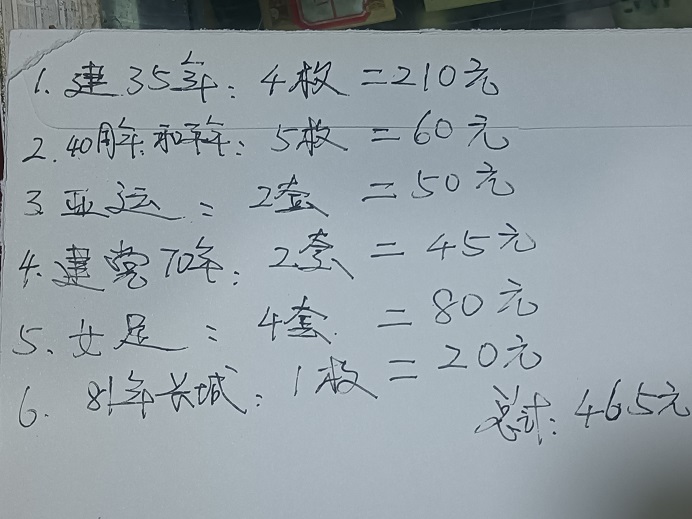 1. 建35年: 4枚 = 210元
2. 40周年: 和平年: 5枚 = 60元
3. 亚运: 2套 = 50元
4. 建党70年: 2套 = 45元
5. 女足: 4套. = 80元
6. 81年长城: 1枚 = 20元
总计: 465元